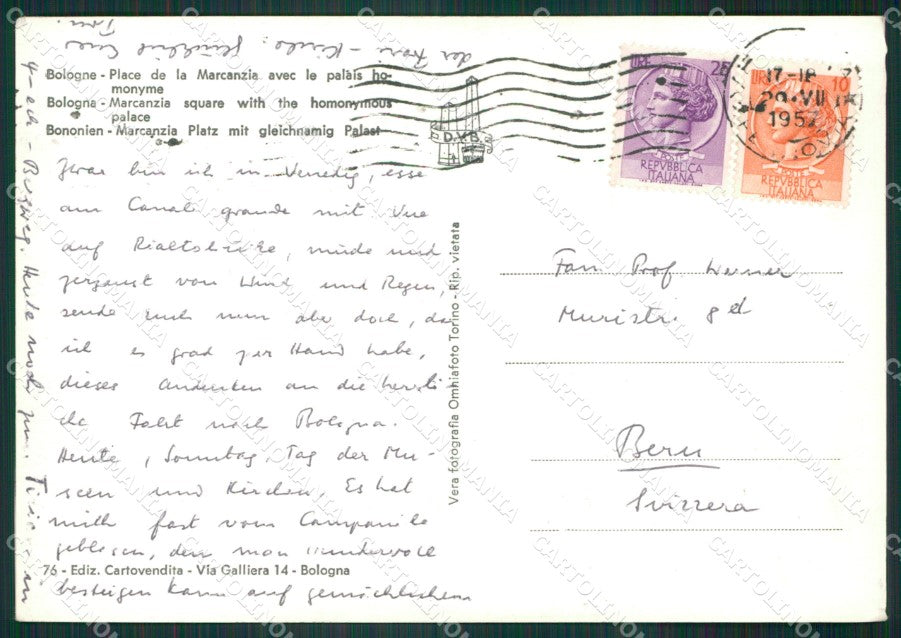 Bologne - Place de la Marcanzia avec le palais ho-
monyme
Bologna - Marcanzia square with the homonymous
palace
Bononien - Marcanzia Platz mit gleichnamig Palast
Zwar bin ich in Venedig, esse
am Canale grande mit Vue
auf Rialtobrücke, müde und
zerzaust von Wind und Regen,
sende euch nun aber doch, da
ich es grad zur Hand habe,
dieses Andenken an die herrli-
che Fahrt nach Bologna.
Heute, Sonntag, Tag der Mu-
seen und Kirchen. Es hat
mich fast vom Campanile
geblasen, den man wundervoll
besteigen kann auf gemächlichem
Heute noch
Vera fotografia Omniafoto Torino - Rip. vietata
76 - Ediz. Cartovendita - Via Galliera 14 - Bologna
D.V.B.
17-18
1957
LIRE 25
POSTE
REPVBBLICA
ITALIANA
LIRE 10
POSTE
REPVBBLICA
ITALIANA
Fam Prof Werner
Muristr. 8d
Bern
Svizzera
CARTOLINOMANIA